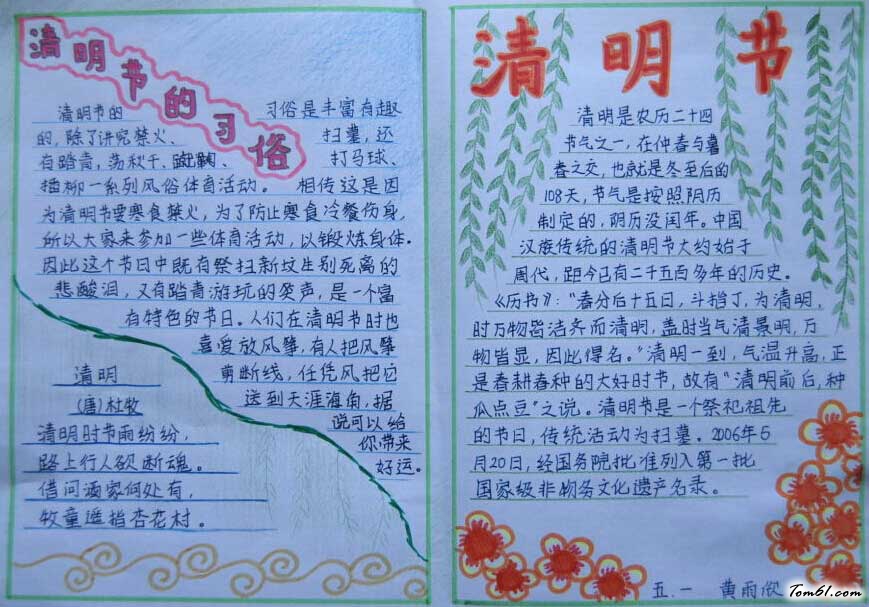 清明节的习俗
清明节的 习俗是丰富有趣
的,除了讲究禁火、 扫墓,还
有踏青,荡秋千、蹴鞠、 打马球、
插柳一系列风俗体育活动。 相传这是因
为清明节要寒食禁火,为了防止寒食冷餐伤身,
所以大家来参加一些体育活动,以锻炼身体。
因此这个节日中既有祭扫新坟生别死离的
悲酸泪,又有踏青游玩的笑声,是一个富
有特色的节日。人们在清明节时也
喜爱放风筝,有人把风筝
剪断线,任凭风把它
送到天涯海角,据
说可以给
你带来
好运。
清明
(唐)杜牧
清明时节雨纷纷,
路上行人欲断魂。
借问酒家何处有,
牧童遥指杏花村。
清明节
清明是农历二十四
节气之一,在仲春与暮
春之交,也就是冬至后的
108天,节气是按照阴历
制定的,阴历没闰年。中国
汉族传统的清明节大约始于
周代,距今已有二千五百多年的历史。
《历书》:"春分后十五日,斗指丁,为清明,
时万物皆洁齐而清明,盖时当气清景明,万
物皆显,因此得名。"清明一到,气温升高,正
是春耕春种的大好时节,故有"清明前后,种
瓜点豆"之说。清明节是一个祭祀祖先
的节日,传统活动为扫墓。2006年5
月20日,经国务院批准列入第一批
国家级非物务文化遗产名录。
五.一 黄雨
Tom61.com